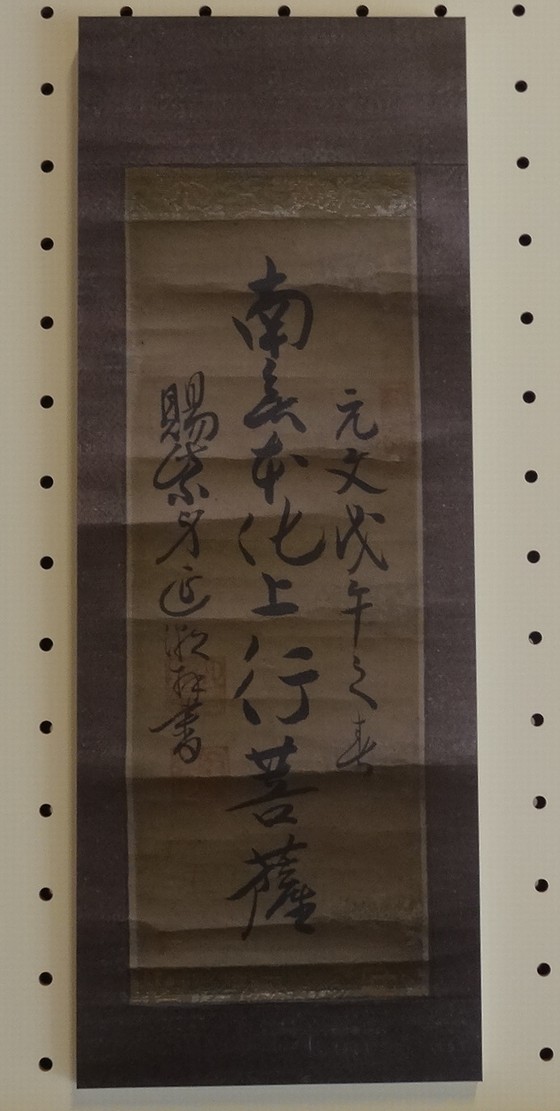 元文戊午之春
南無本化上行菩薩
賜紫身延
書